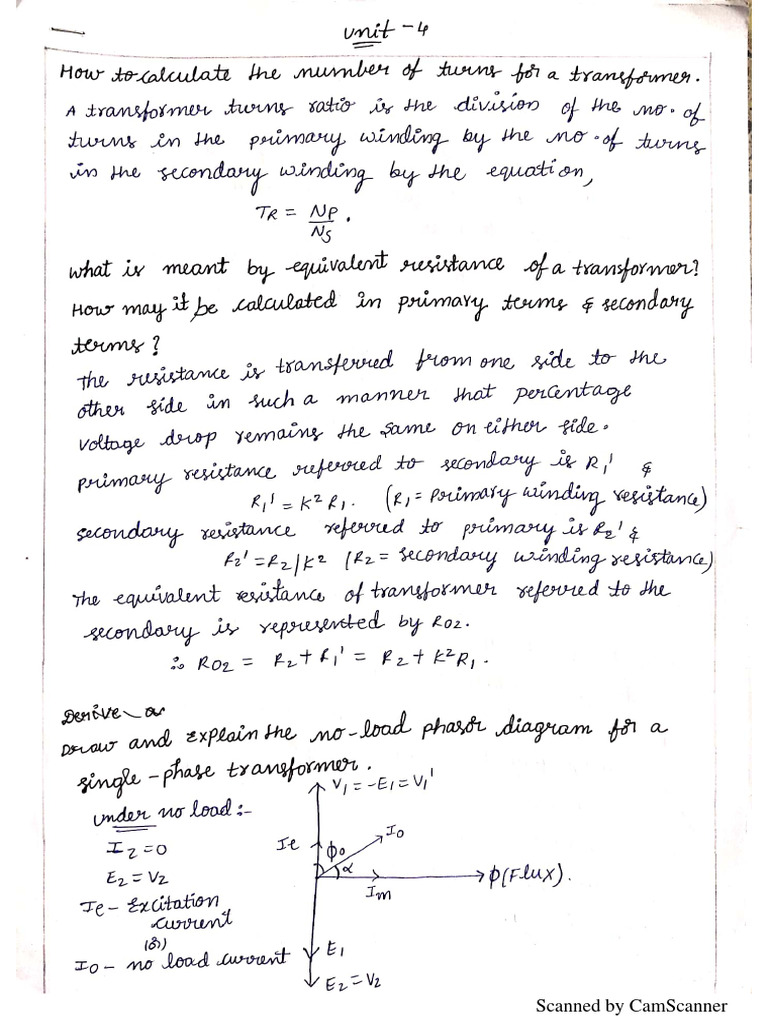 unit - 4
How to calculate the number of turns for a transformer.
A transformer turns ratio is the division of the no. of
turns in the primary winding by the no. of turns
in the secondary winding by the equation,
TR = NP/NS.
what is meant by equivalent resistance of a transformer?
How may it be calculated in primary terms & secondary
terms?
The resistance is transferred from one side to the
other side in such a manner that percentage
voltage drop remains the same on either side.
primary resistance referred to secondary is R1' &
R1' = K²R1. (R1 = primary winding resistance)
secondary resistance referred to primary is R2' &
R2' = R2/K² (R2 = secondary winding resistance)
The equivalent resistance of transformer referred to the
secondary is represented by R02.
∴ R02 = R2 + R1' = R2 + K²R1.
Derive or
Draw and explain the no-load phasor diagram for a
single-phase transformer.
V1 = -E1 = V1'
under no load:-
I2 = 0
E2 = V2
Ie - Excitation
current
(or)
I0 - no load current
Ie
ϕ0
I0
α
Im
ϕ(Flux).
E1
E2 = V2
Scanned by CamScanner